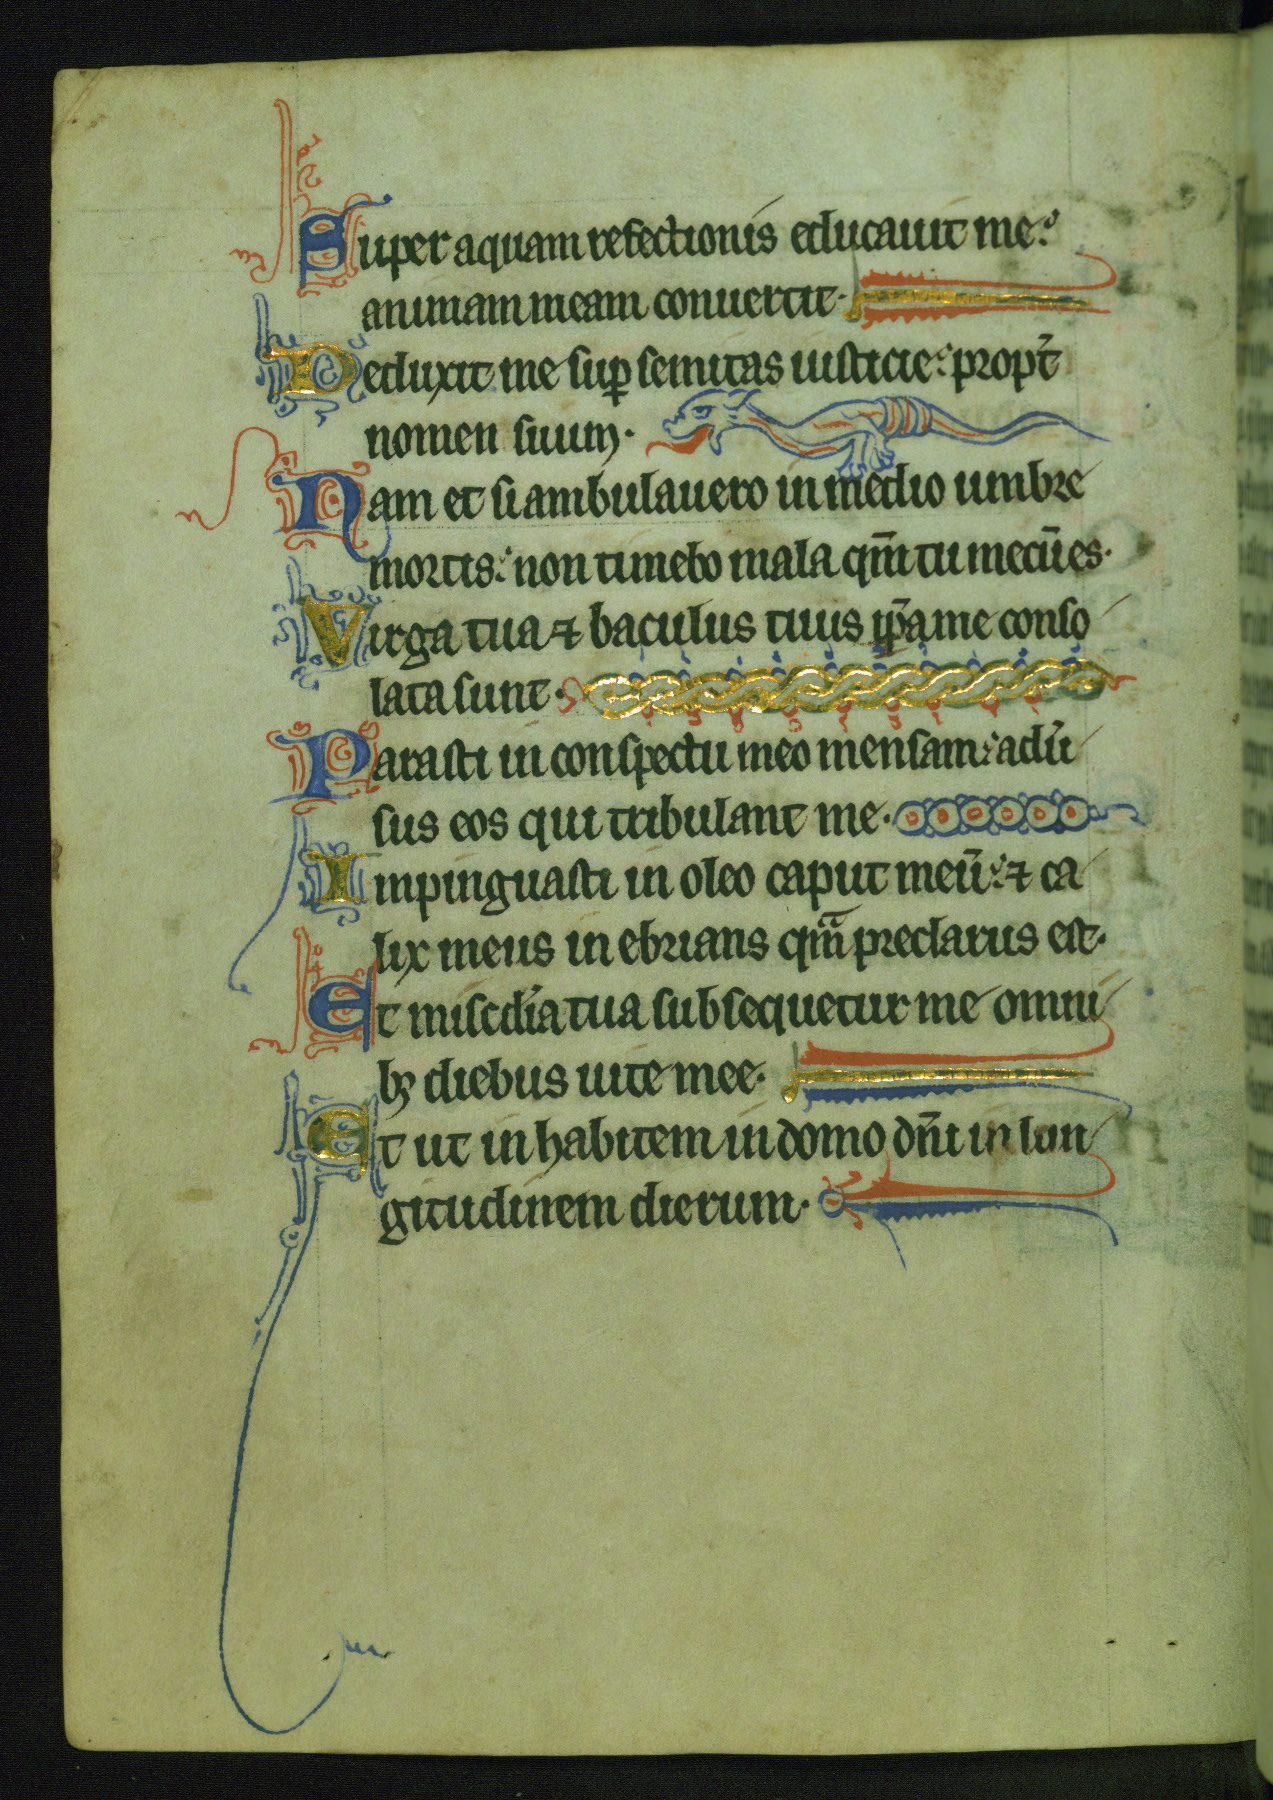 Super aquam refectionis educauit me:
animam meam conuertit·
Deduxit me sup̱ semitas iusticie: propt̃
nomen suum·
Nam et si ambulauero in medio umbre
mortis: non timebo mala qm̄ tu mecū es·
Virga tua ⁊ baculus tuus ip̄a me conso
lata sunt·
Parasti in conspectu meo mensam: adũ
sus eos qui tribulant me·
Impinguasti in oleo caput meū: ⁊ ca
lix meus in ebrians qm̄ preclarus est·
Et misćdia tua subsequetur me omni
bꝫ diebus uite mee·
Et ut in habitem in domo dn̄i in lon
gitudinem dierum·